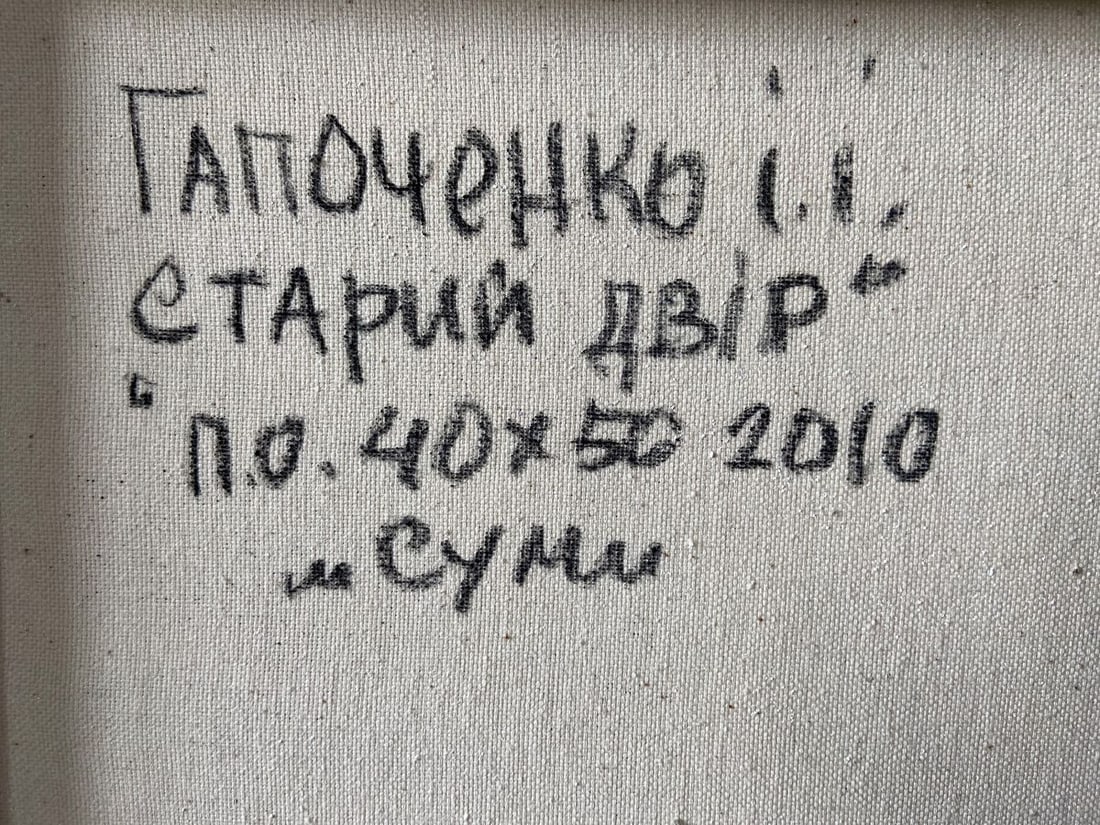 Гапоченко І.І.
"Старий двір"
п.о. 40х50 2010
м Суми